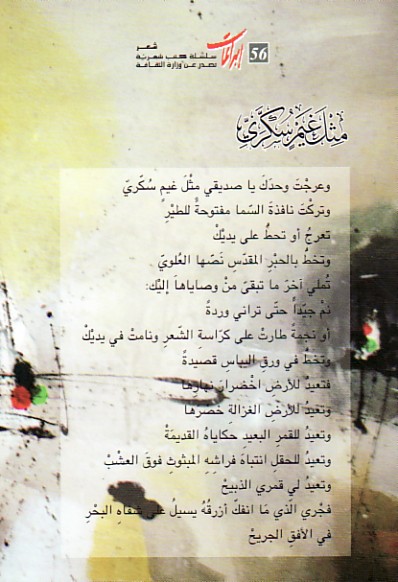 شعر
إبداعات
سلسلة كتب شعرية
تصدر عن وزارة الثقافة
56
مِثلَ غَيمٍ سُكّريّ
وعرجْتَ وحدَكَ يا صديقي مثْلَ غيمٍ سُكّريّ
وتركْتَ نافذةَ السّما مفتوحةً للطيْرِ
تعرجُ أو تحطُّ على يديْكْ
وتخطُّ بالحبْرِ المقدّسِ نَصّها العُلويّ
تُملي آخرَ ما تبقىّ منْ وصاياهاَ إليْكَ:
نمْ جيّداً حتّى تراني وردةً
أو نجمةً طارتْ على كرّاسة الشّعرِ ونامتْ في يديْكْ
وتخطُّ في ورقِ اليباسِ قصيدةً
فتعيدُ للأرضِ اخضرارَ نهارِها
وتعيدُ للأرضِ الغزالةِ خصْرَها
وتعيدُ للقمرِ البعيدِ حكاياهُ القديمَةْ
وتعيدُ للحقلِ انتباهَ فراشِهِ المبثوثِ فوقَ العشْبْ
وتعيدُ لي قمري الذبيحْ
فجْري الّذي مَا انفكَّ أزرقُهُ يسيلُ على شفاهِ البحْرِ
في الأفقِ الجريحْ